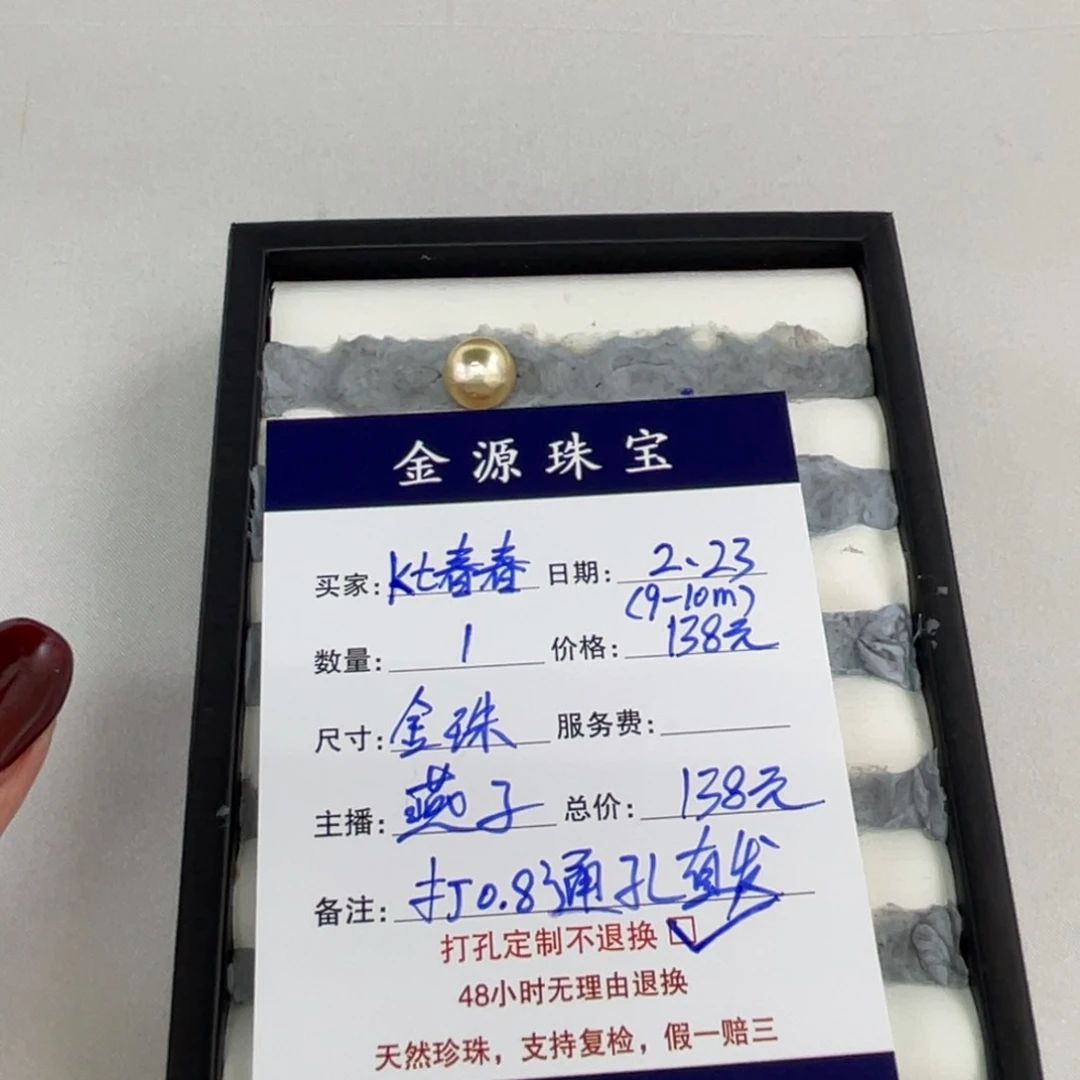 金源珠宝
买家: kt春春 日期: 2、23
(9-10m)
数量: 1 价格: 138元
尺寸: 金珠 服务费:
主播: 燕子 总价: 138元
备注: 打0.8通孔直发
打孔定制不退换
48小时无理由退换
天然珍珠，支持复检，假一赔三